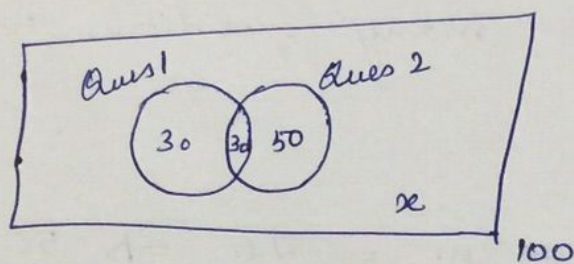 Ques 1 Ques 2
30 30 50
x
100